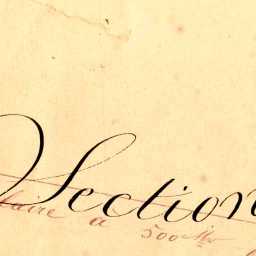 Section
à 500 M